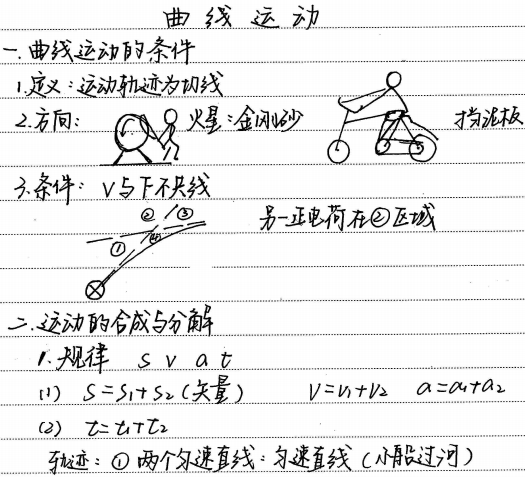 曲线运动
一.曲线运动的条件
1.定义:运动轨迹为切线
2.方向: 火星:金刚砂 挡泥板
3.条件: V与F不共线
② ③
① ④
另一正电荷在②区域
二.运动的合成与分解
1.规律 S V a t
(1) S=S₁+S₂(矢量) V=V₁+V₂ a=a₁+a₂
(2) t=t₁+t₂
轨迹:① 两个匀速直线:匀速直线(小船过河)